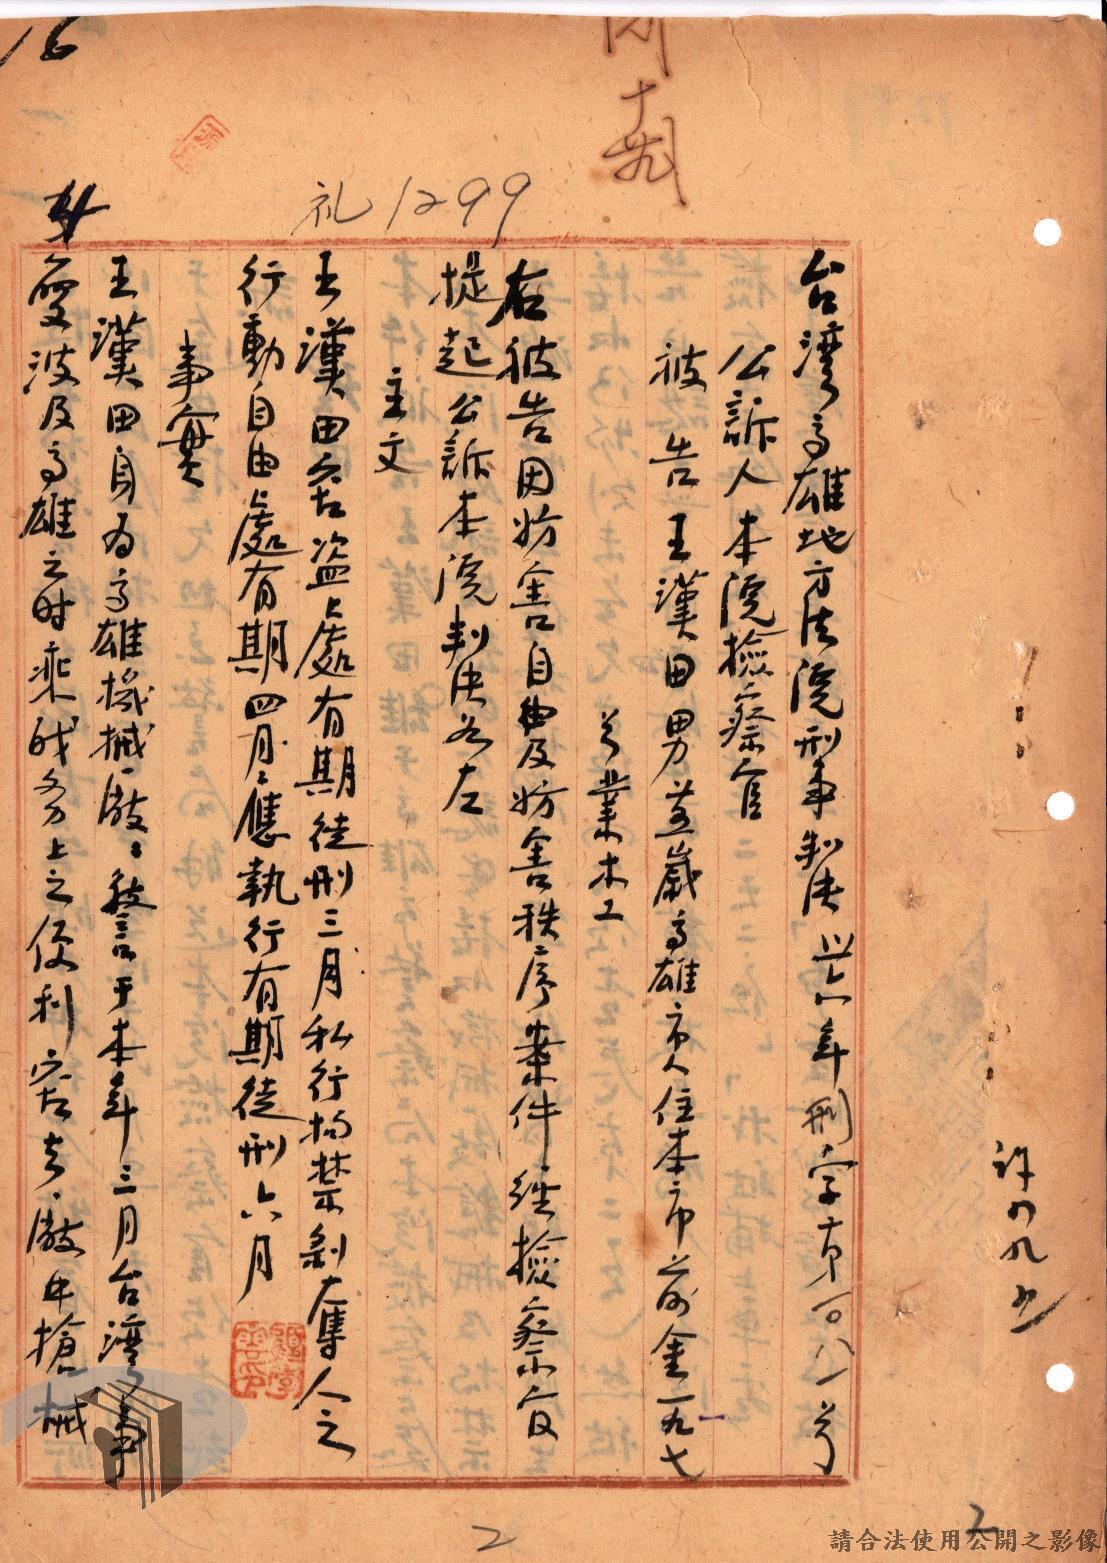 台灣高雄地方法院刑事判決 卅六年刑字第一〇八八号
公訴人本院檢察官
被告 王漢田 男 歲高雄市人住本市前金一九七
号業木工
右被告因妨害自由及妨害秩序案件經檢察官
提起公訴本院判決如左
主文
王漢田窃盗處有期徒刑三月私行拘禁剝奪人之
行動自由處有期四月應執行有期徒刑六月
事實
王漢田身為高雄機械廠警于本年三月台灣事
變波及高雄之时乘职务上之便利窃去廠中槍械
礼1299
十
2
2
請合法使用公開之影像